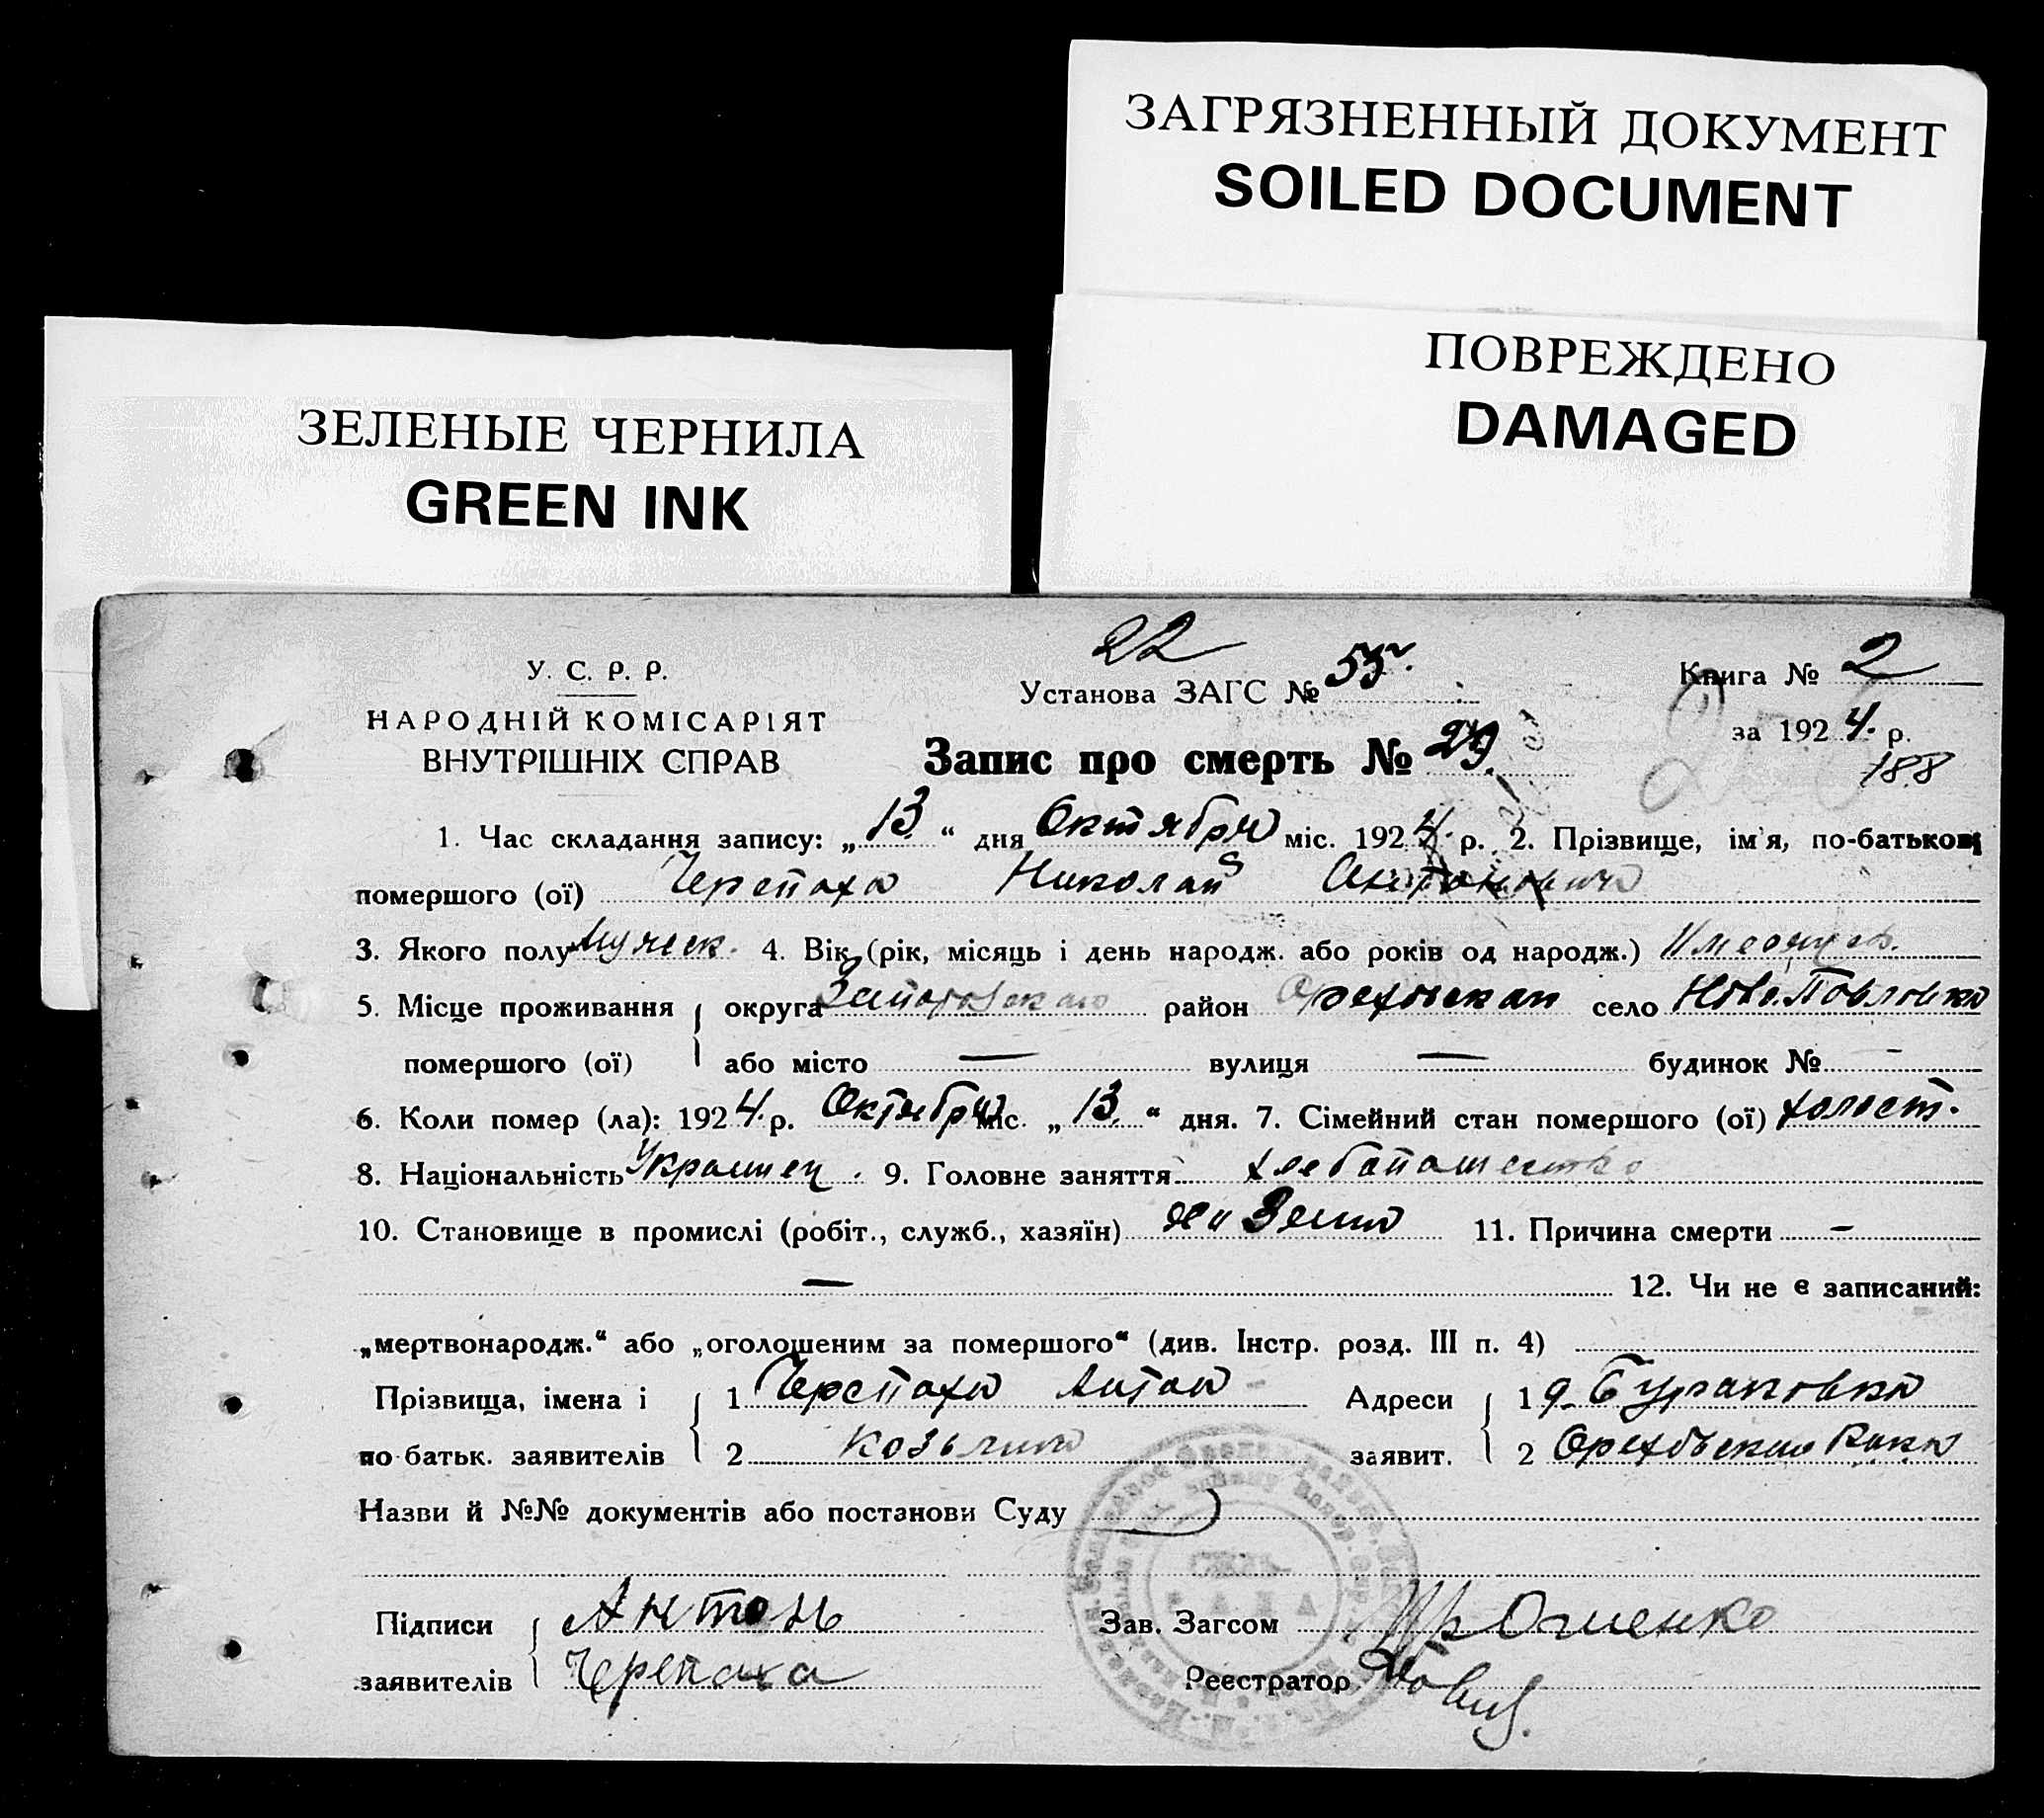 ЗАГРЯЗНЕННЫЙ ДОКУМЕНТ
SOILED DOCUMENT
ПОВРЕЖДЕНО
DAMAGED
ЗЕЛЕНЫЕ ЧЕРНИЛА
GREEN INK
22
У. С. Р. Р.
Установа ЗАГС № 55.
Книга № 2
НАРОДНІЙ КОМІСАРІЯТ
ВНУТРІШНІХ СПРАВ
за 1924. р.
Запис про смерть № 29.
188
1. Час складання запису: „13.“ дня Октября міс. 1924. р. 2. Прізвище, ім'я, по-батькові
помершого (ої) Черепаха Николай Антонович
3. Якого полу Мужск. 4. Вік (рік, місяць і день народж. або років од народж.)
5. Місце проживання округа район Ореховскаго село Ново-Павловка
помершого (ої) або місто — вулиця — будинок № -
6. Коли помер (ла): 1924. р. Октября міс. „13.“ дня. 7. Сімейний стан помершого (ої) холост.
8. Національність Украинец. 9. Головне заняття хлебопашество
10. Становище в промислі (робіт., служб., хазяїн) 11. Причина смерти -
— 12. Чи не є записаний:
„мертвонародж.“ або „оголошеним за помершого“ (див. Інстр. розд. III п. 4)
Прізвища, імена і 1 Черепаха Антон - Адреси 1 д. Бураковка
по батьк. заявителів 2 Козьмич заявит. 2 Ореховский
Назви й №№ документів або постанови Суду
Підписи Антонъ Зав. Загсом
заявителів Черепаха Реєстратор